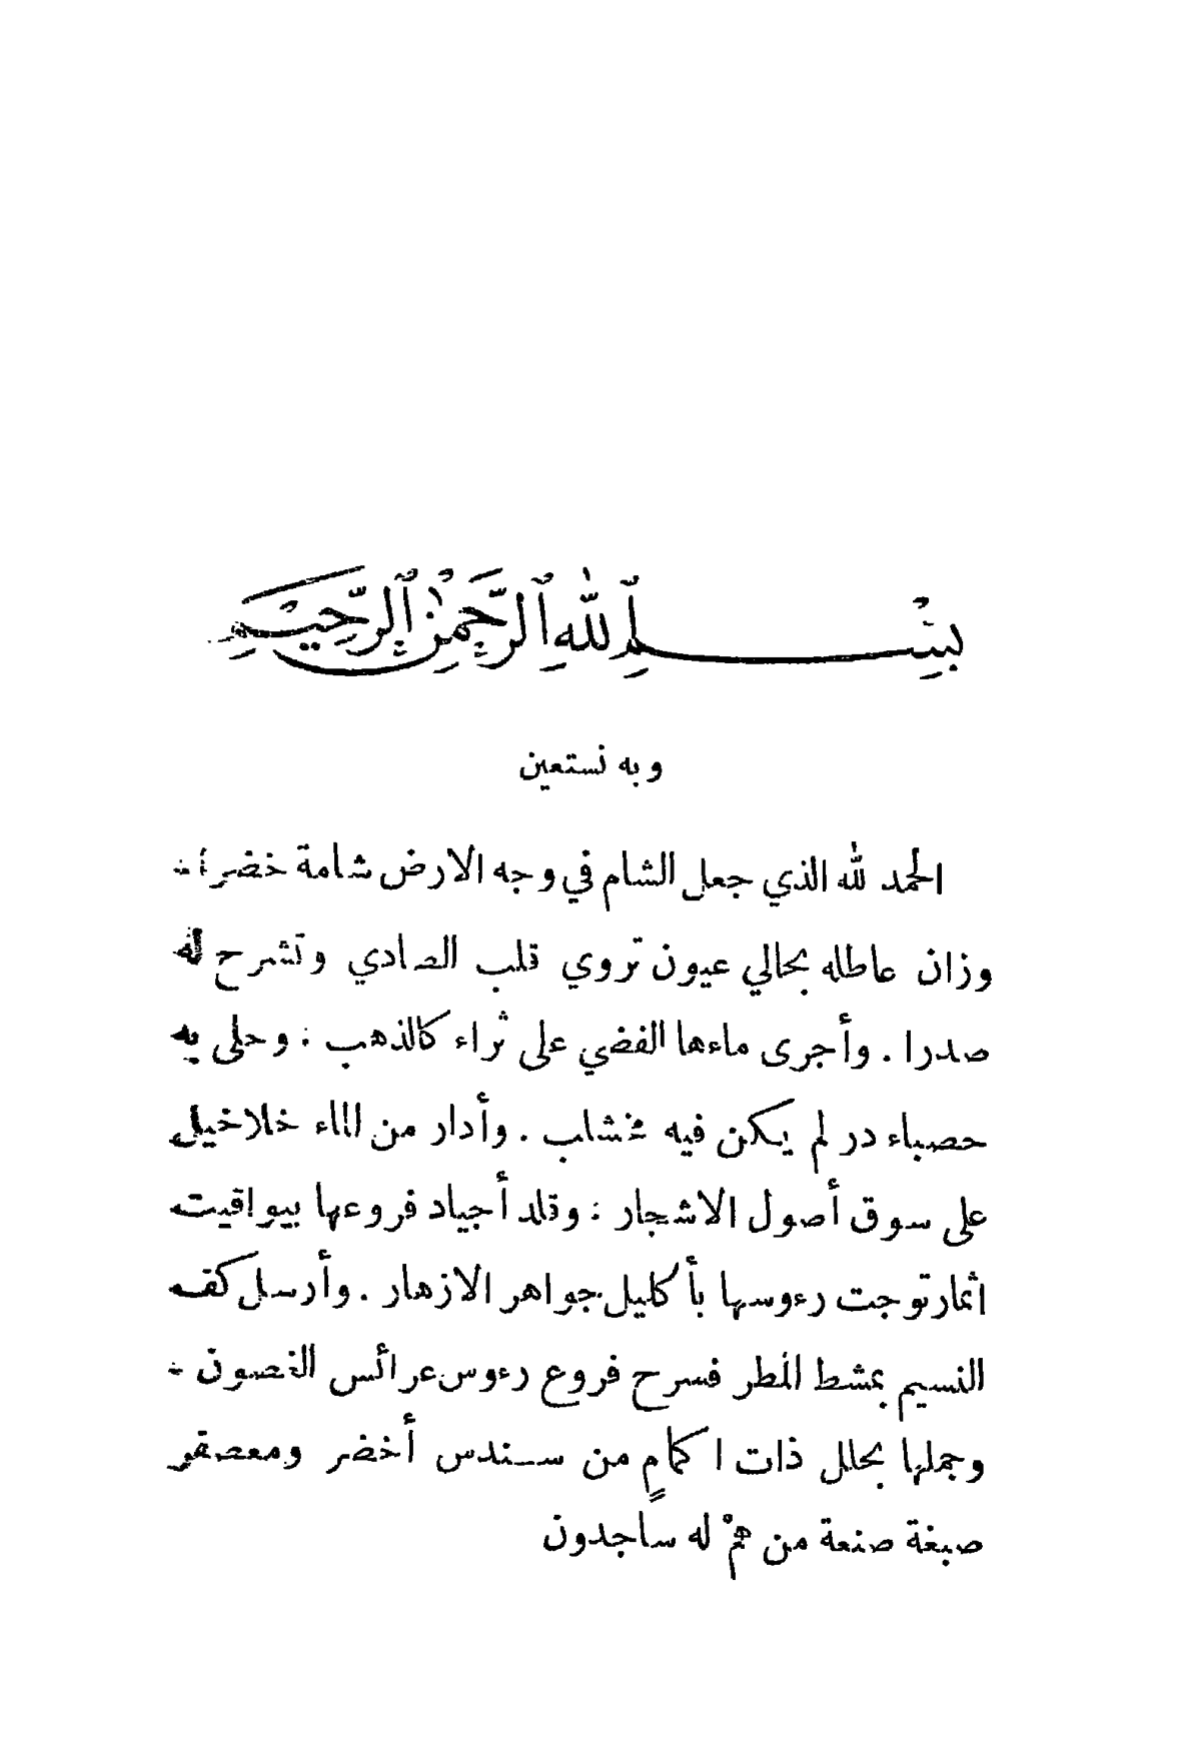 بِسْمِ اللّٰهِ الرَّحْمٰنِ الرَّحِيْمِ
وبه نستعين
الحمد لله الذي جعل الشام في وجه الارض شامة خضراء
وزان عاطله بحالي عيون تروي قلب الصادي وتشرح له
صدرا . وأجرى ماءها الفضي على ثراء كالذهب : وحلى به
حصباء در لم يكن فيه مخشلب . وأدار من الماء خلاخيل
على سوق أصول الاشجار : وقلد أجياد فروعها بيواقيت
اثمار توجت رءوسها بأكليل جواهر الازهار . وأرسل كف
النسيم بمشط المطر فسرح فروع رءوس عرائس الغصون :
وجملها بحلل ذات اكمامٍ من سندس أخضر ومعصفر
صبغة صنعة من همْ له ساجدون